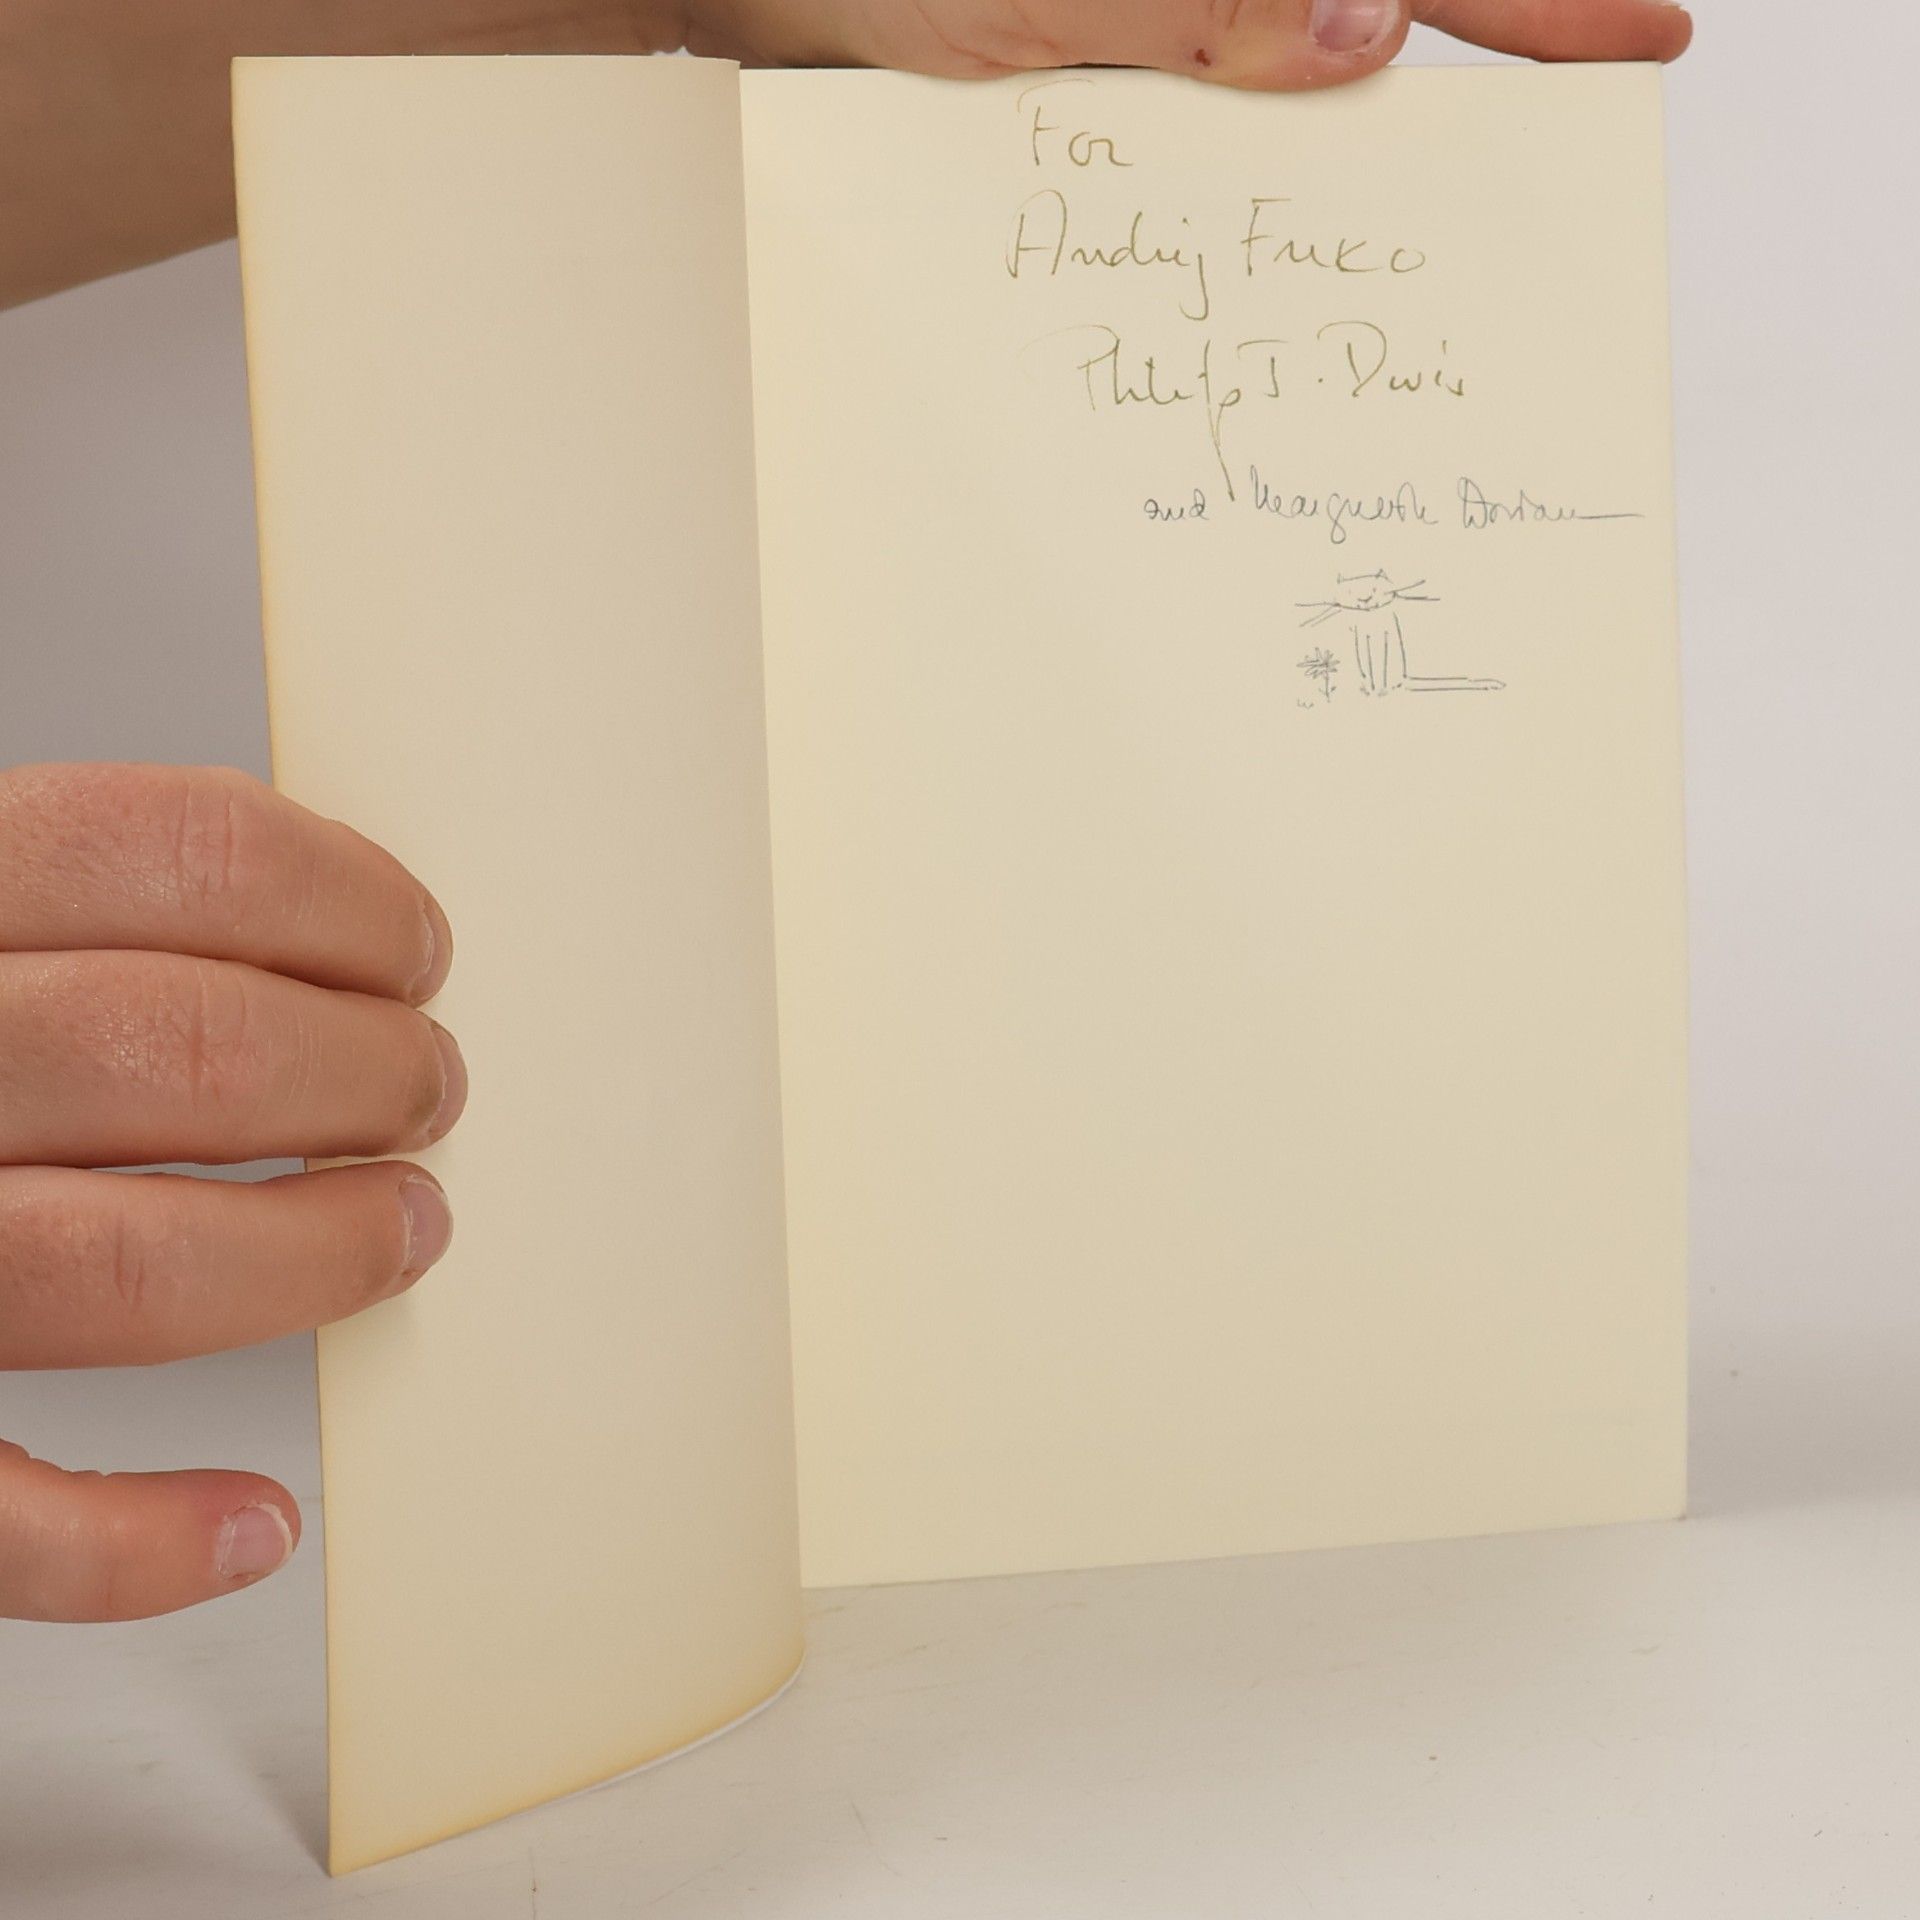 For
Andrij Fuko
Philip J. Davis
and Marguerite Dorian